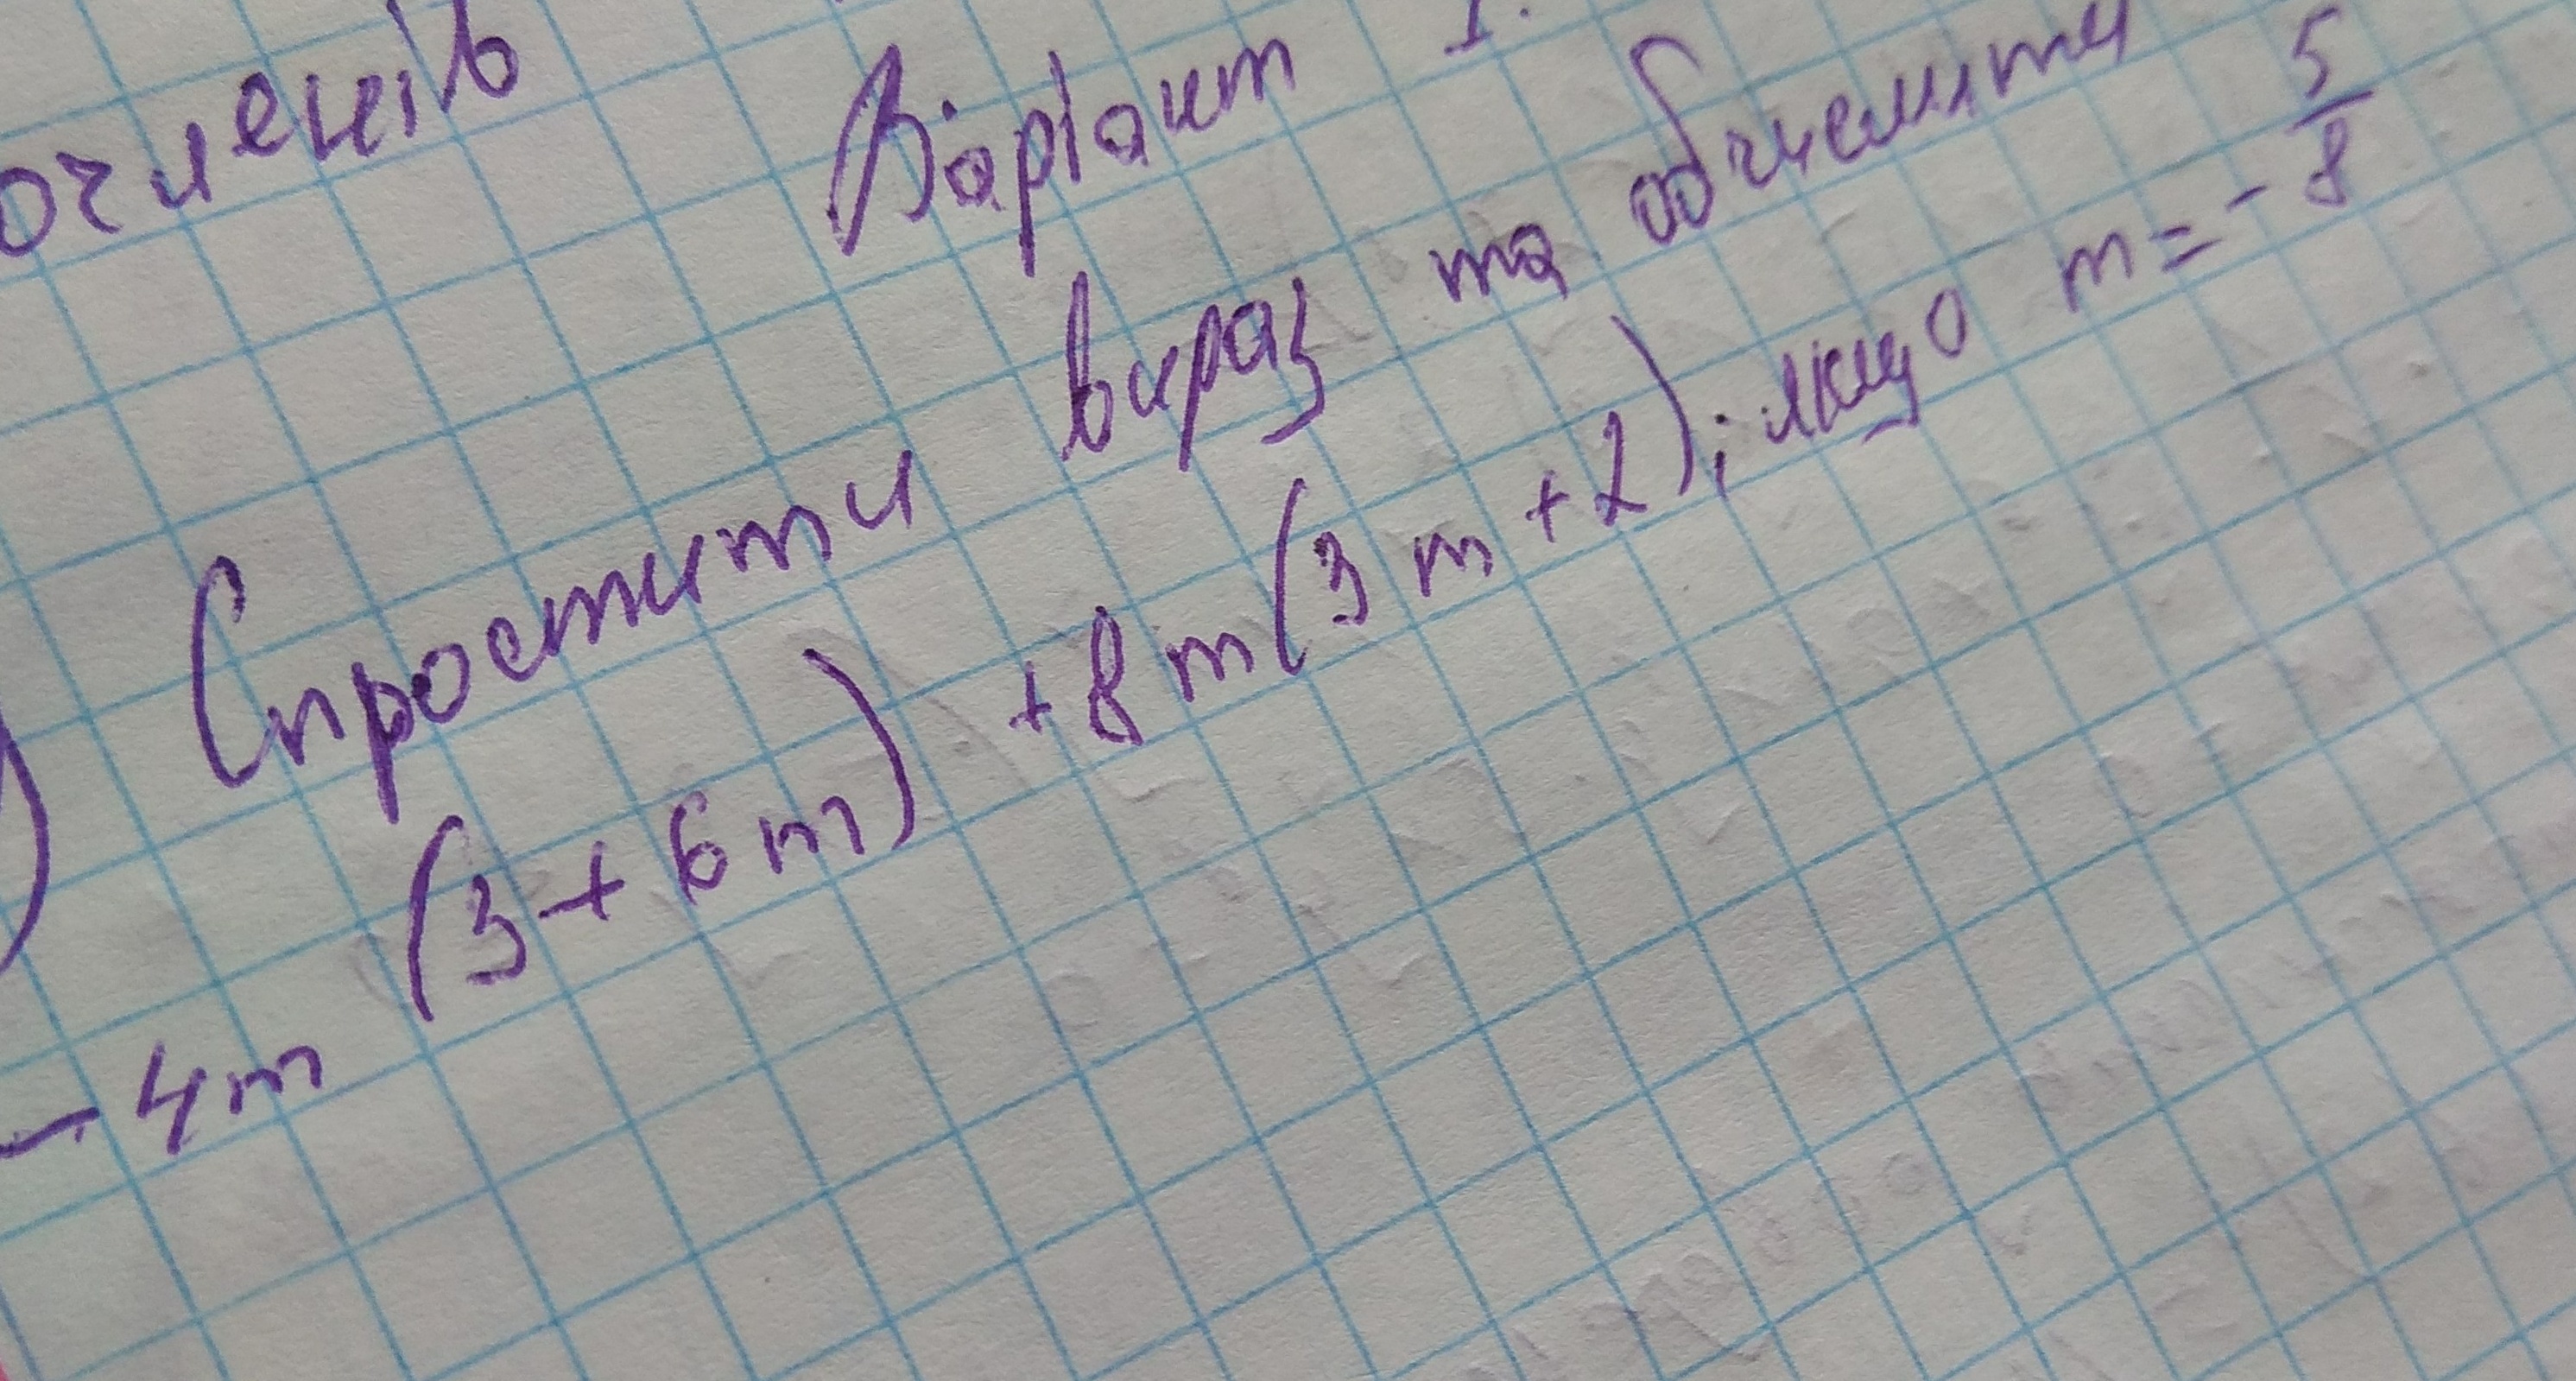 очленів
Варіант I.
Спростити вираз та обчислити
- 4m (3 + 6m) + 8m (3m + 2); якщо m = - 5/8